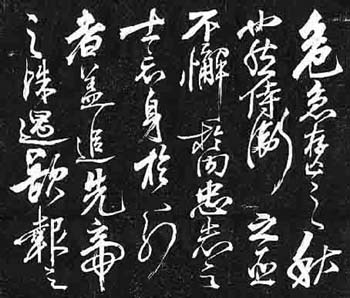 危急存亡之秋
也然侍衛之臣
不懈於内忠志之
士忘身於外
者盖追先帝
之殊遇欲報之